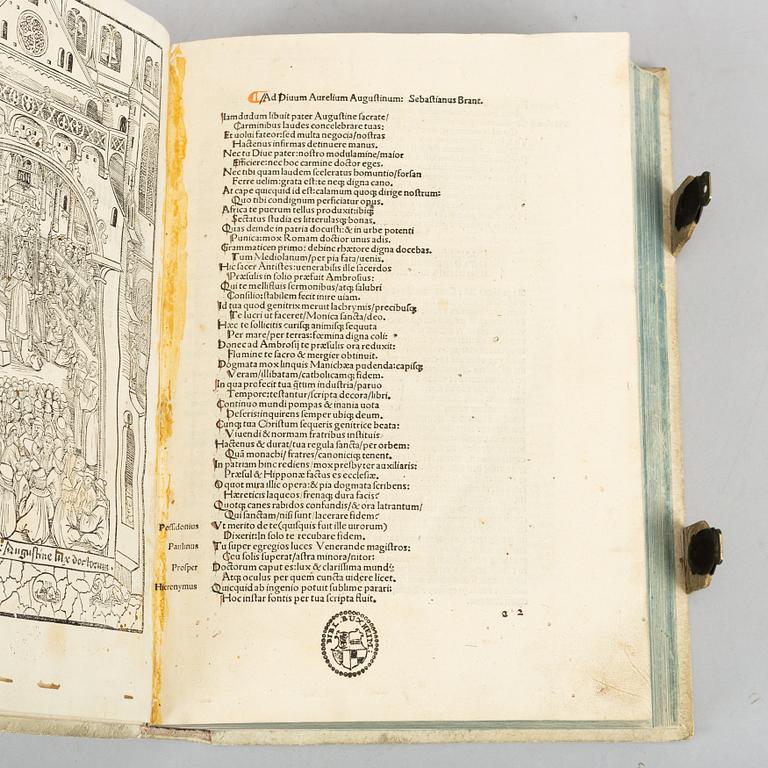 S. Augustine lux doctorum
Ad Diuum Aurelium Augustinum: Sebastianus Brant.
Iamdudum libuit pater Augustine sacrate/
Carminibus laudes concelebrare tuas:
Et uolui fateor: sed multa negocia/nostras
Hactenus infirmas detinuere manus.
Nec tu Diue pater: nostro modulamine/maior
Efficiere: nec hoc carmine doctor eges.
Nec tibi quam laudem sceleratus homuntio/forsan
Ferre uelim: grata est: te neq; digna cano.
At cape quicquid id est: calamum quoq; dirige nostrum:
Quo tibi condignum perficiatur opus.
Africa te puerum tellus produxit: tibiq;
Sectatus studia es litterulasq; bonas.
Quas deinde in patria docuisti: & in urbe potenti
Punica: mox Romam doctior unus adis.
Grammaticen primo: debinc rhætore digna docebas.
Tum Mediolanum/per pia fata/uenis.
Hic sacer Antistes: uenerabilis ille sacerdos
Præsulis in solio præfuit Ambrosius:
Qui te mellifluis sermonibus/atq; salubri
Consilio: stabilem fecit inire uiam.
Id tua quod genitrix meruit lachrymis/precibusq;
Te lucri ut faceret/Monica sancta/deo.
Hæc te sollicitis curisq; animisq; sequuta
Per mare/per terras: fœmina digna coli:
Donec ad Ambrosij te præsulis ora reduxit:
Flumine te sacro & mergier obtinuit.
Dogmata mox linquis Manichæa pudenda: capisq;
Veram/illibatam/catholicamq; fidem.
In qua profecit tua q̃tum industria/paruo
Tempore: testantur/scripta decora/libri.
Continuo mundi pompas & inania uota
Deseris: inquirens semper ubiq; deum.
Cunq; tua Christum sequeris genitrice beata:
Viuendi & normam fratribus instituis
Hactenus & durat/tua regula sancta/per orbem:
Quã monachi/fratres/canonicíq; tenent.
In patriam hinc rediens/mox presbyter auxiliaris:
Præsul & Hipponæ factus es ecclesiæ.
O quot mira illic opera: & pia dogmata scribens:
Hæreticis laqueos/frenaq; dura facis:
Quotq; canes rabidos confundis/& ora latrantum/
Qui sanctam/nisi sunt/lacerare fidem:
Possidonius Vt merito de te (quisquis fuit ille uirorum)
Dixerit: In solo te recubare fidem.
Paulinus Tu super egregios luces Venerande magistros:
Ceu solis superat/astra minora/nitor:
Prosper Doctorum caput es: lux & clarissima mundi:
Atq; oculus per quem cuncta uidere licet.
Hieronymus Quicquid ab ingenio potuit sublime parari:
Hoc instar fontis per tua scripta fluit.
a 2
BIBL. BUXHEIM.